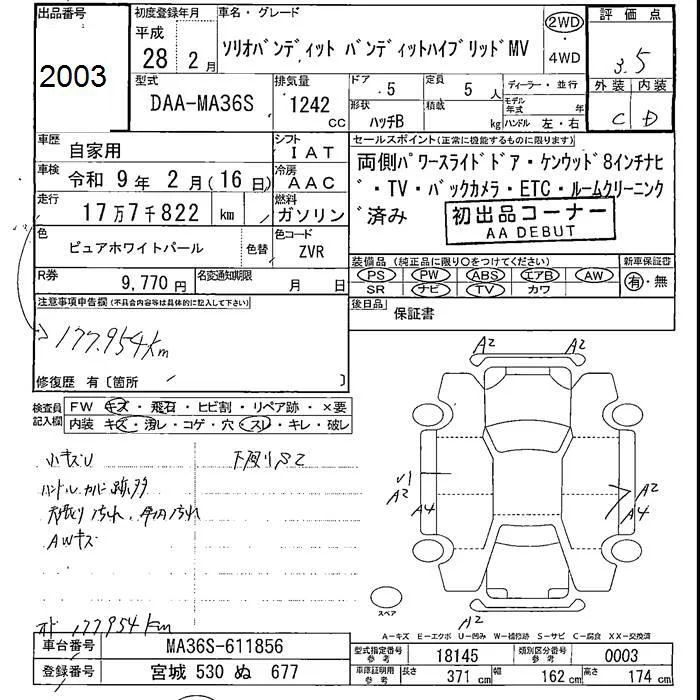 出品番号
2003
初度登録年月
平成
28年2月
車名・グレード
ソリオバンディット バンディットハイブリッドMV
2WD
・
4WD
評価点
3.5
外装 内装
C D
型式
DAA-MA36S
排気量
1242
CC
ドア
5
定員
5人
形状
ハッチB
積載
kg
ディーラー・並行
モデル年式
年
ハンドル 左・右
車歴
自家用
シフト
IAT
車検
令和9年2月(16日)
冷房
AAC
走行
17万7千822 km
燃料
ガソリン
色
ピュアホワイトパール
色替
色コード
ZVR
R券
9,770円
名変通知期限
月 日
セールスポイント(正常に機能するものに限ります)
両側パワースライドドア・ケンウッド8インチナビ
・TV・バックカメラ・ETC・ルームクリーニング
済み
初出品コーナー
AA DEBUT
装備品(純正品に限り○をつけてください)
PS PW ABS エアB AW
SR ナビ TV カワ
新車保証書
有・無
後日品
保証書
注意事項申告欄(不具合内容等は具体的に記入して下さい)
177.954km
修復歴 有〔箇所 〕
検査員
記入欄
FW キズ・飛石・ヒビ割・リペア跡・×要
内装 キズ・汚レ・コゲ・穴・スレ・キレ・破レ
小キズU
下廻りS2
ハンドル カバー跡多
天張り汚れ、
AWキズ
オド 177954km
A2 A2
U1
A2
A4
A2
A4
A2
スペア
A−キズ E−エクボ U−凹み W−補修跡 S−サビ C−腐食 XX−交換済
車台番号
MA36S-611856
登録番号
宮城 530 ぬ 677
型式指定番号
参考
18145
類別区分番号
参考
0003
車庫証明用
参考
長さ 371 cm
幅 162 cm
高さ 174 cm